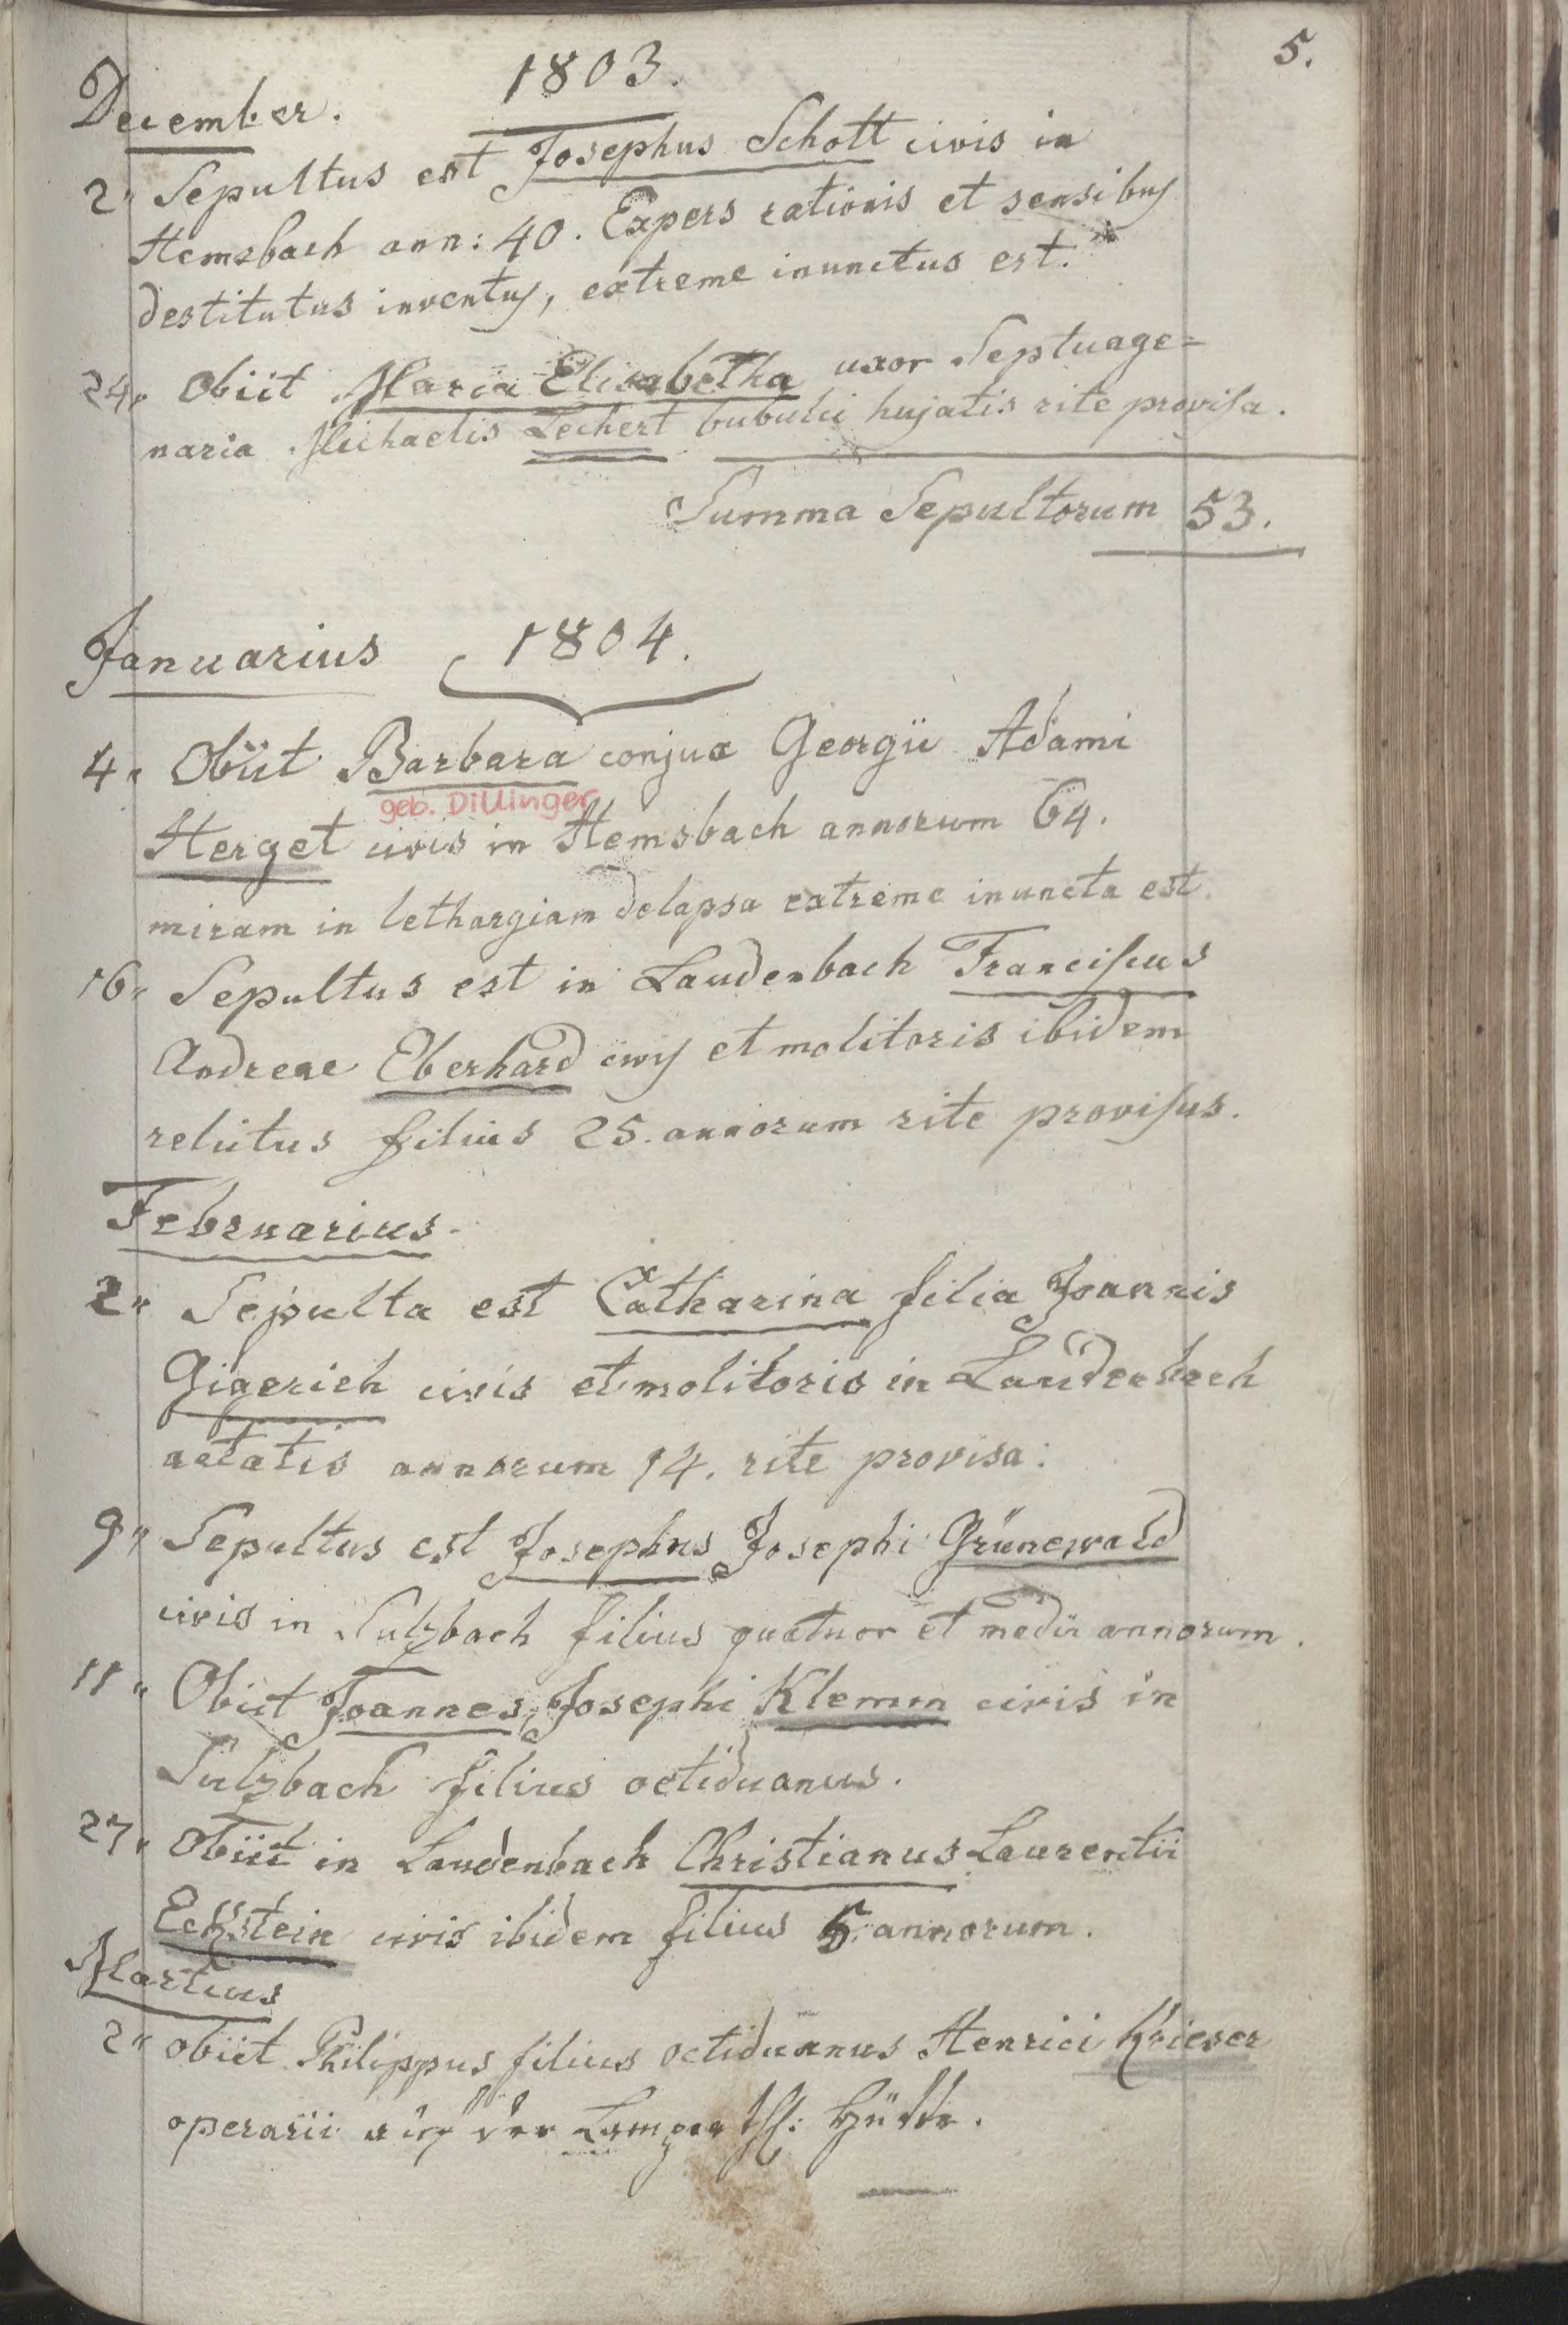 5.
1803.
December.
2" Sepultus est Josephus Schott civis in
Hemsbach ann: 40. Expers rationis et sensibus
destitutus inventus, extreme inunctus est.
24" Obiit Maria Elisabetha uxor Septuage=
naria Michaelis Lechert bubulci hujatis rite provisa.
Summa Sepultorum 53.
Januarius 1804.
4" Obiit Barbara conjux Georgii Adami
geb. Dillinger
Herget civis in Hemsbach annorum 64.
miram in lethargiam delapsa extreme inuncta est.
16" Sepultus est in Laudenbach Franciscus
Andreae Eberhard civis et molitoris ibidem
relictus filius 25. annorum rite provisus.
Februarius.
2" Sepulta est Catharina filia Joannis
Gigerich civis et molitoris in Laudenbach
aetatis annorum 14. rite provisa:
9" Sepultus est Josephus Josephi Grünewald
civis in Sulzbach filius quatuor et medii annorum.
11" Obiit Joannes, Josephi Klemm civis in
Sulzbach filius octiduanus.
27" Obiit in Laudenbach Christianus Laurentii
Eckstein civis ibidem filius 5 annorum.
Martius
2" obiit Philippus filius octiduanus Henrici Krieser
operarii auf der Hütte.